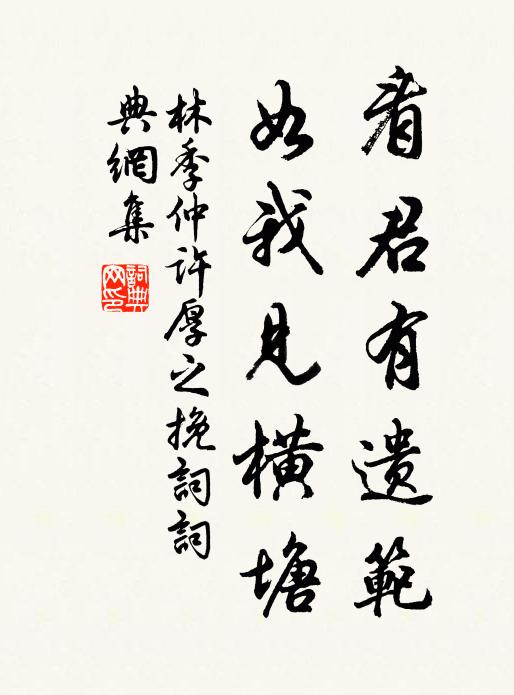 看君有遗範
如我見橫塘
林季仲许厚之挽詞詞
典網集
詞典网印